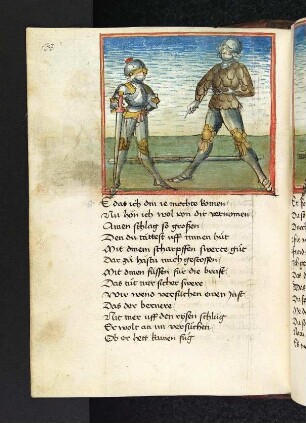 E das ich din ie mochte komen
Nu hon ich wol von dir vernomen
Ainen schlag so großen
Den du tättest uff minen hůt
Mit dinem scharpffen swerte gůt
Dar zů hastu mich gestossen
Mit dinen füssen für die brust
Das tůt mir sicher swere
Wir wend versůchen einen
Das der bernere
Nit mer uff den rysen schlůg
Er wolt an im versůchen
Ob er hett fůg